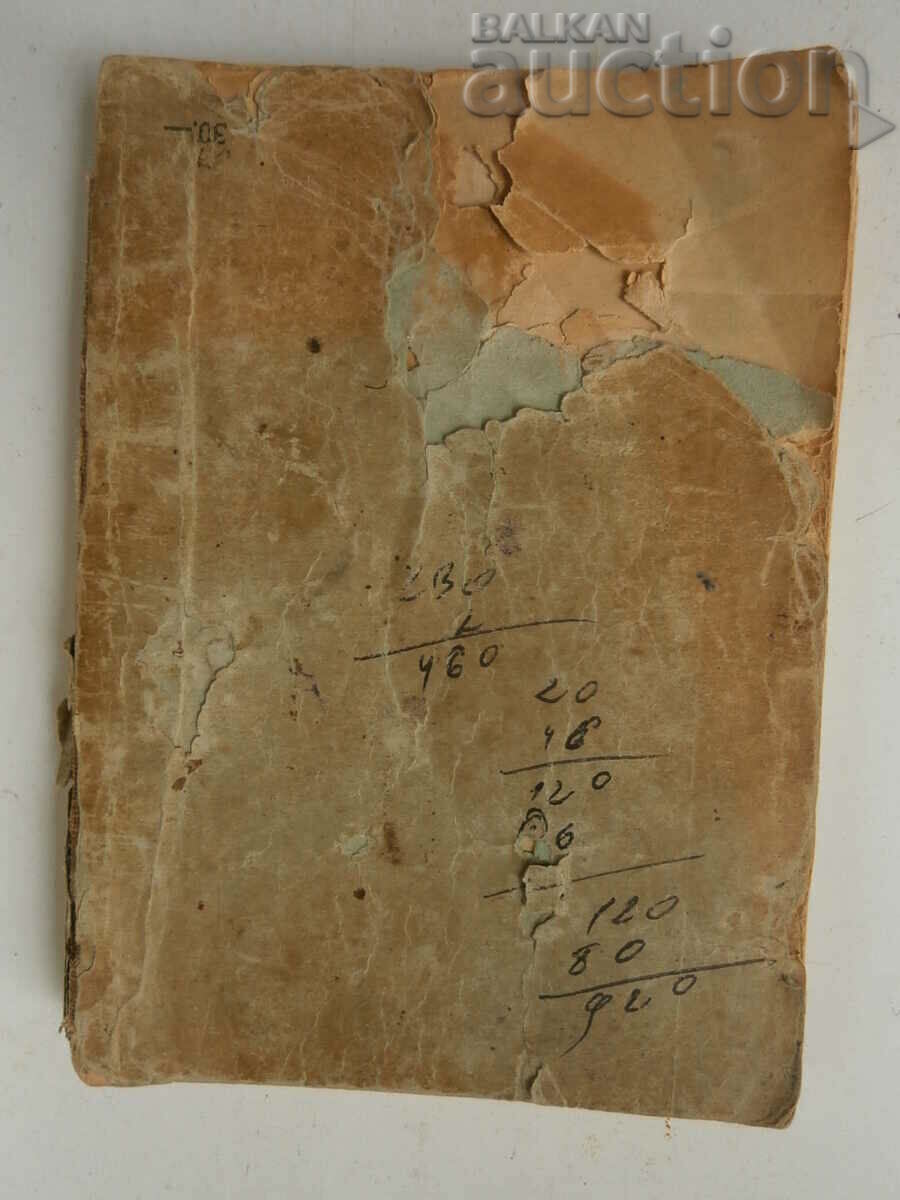 BALKAN
auction
30.—
230
2
460
20
46
120
6
120
80
920